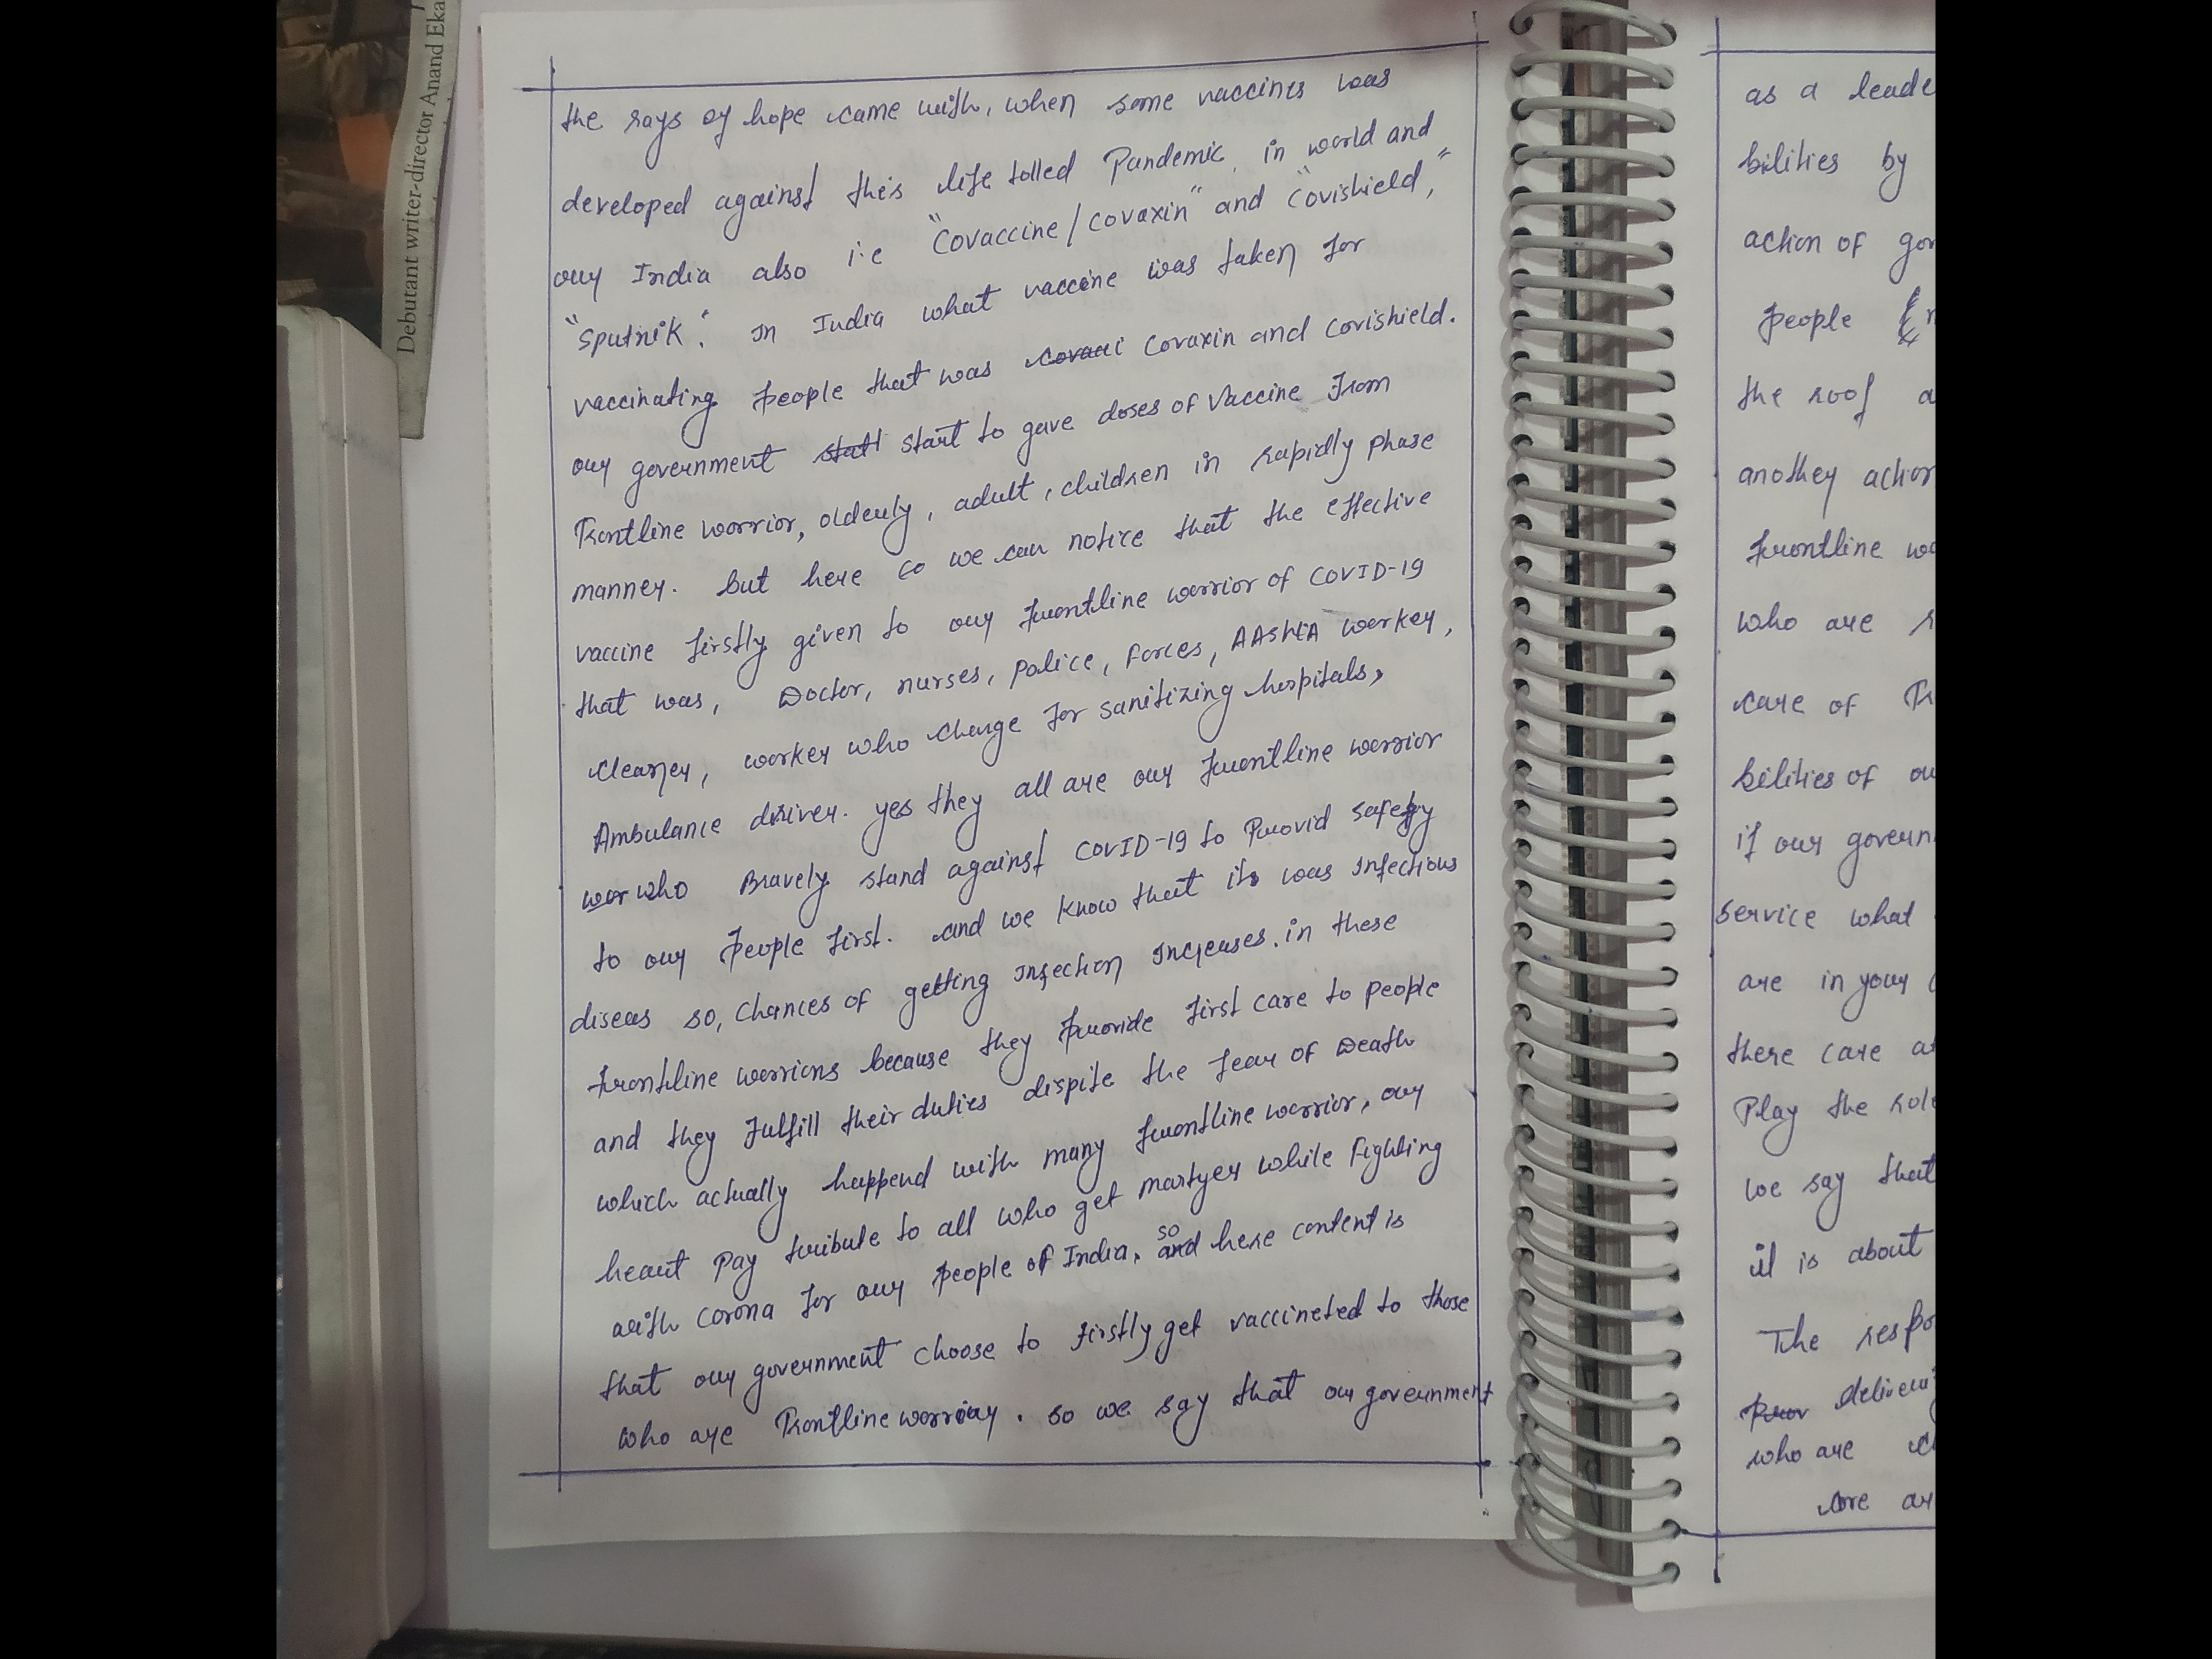 Debutant writer-director Anand Eka
the rays of hope came with, when some vaccines was
developed against this life tolled Pandemic in world and
our India also i.e "Covaccine/covaxin" and "Covishield,"
"Sputnik". In India what vaccine was taken for
vaccinating people that was covaci Covaxin and Covishield.
our government statt start to gave doses of Vaccine from
Frontline worrior, olderly, adult, children in rapidly phase
manner. but here co we can notice that the effective
vaccine firstly given to our frontline worrior of COVID-19
that was, Doctor, nurses, police, forces, AASHA worker,
cleaner, worker who charge for sanitizing hospitals,
Ambulance driver. yes they all are our frontline worrior
wor who Bravely stand against COVID-19 to Provid safety
to our people first. and we know that its was Infectious
diseas so, Chances of getting Infection Increases. in these
frontline worriors because they provide first care to people
and they fulfill their duties dispite the fear of Death
which actually happend with many frontline worrior, our
heart pay tribute to all who get martyer while fighting
with corona for our people of India. so and here content is
that our government choose to firstly get vaccineted to those
who are Frontline worrior. so we say that our government
as a leade
bilities by
action of gov
people
the roof a
another action
frontline wo
who are r
care of Fr
bilities of ou
if our governm
service what
are in your
there care at
Play the role
we say that
it is about
The respo
prov deliver
who are
are ar